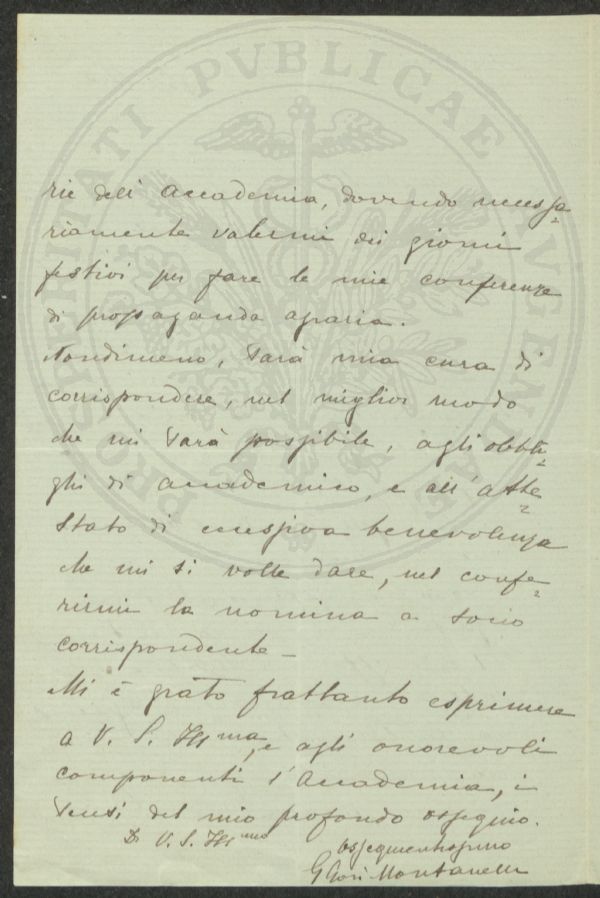 PROSPERITATI PVBLICAE AVGENDAE
rie dell'Accademia, dovendo necessa=
riamente valermi dei giorni
festivi per fare le mie conferenze
di propaganda agraria.
Nondimeno, sarà mia cura di
corrispondere, nel miglior modo
che mi sarà possibile, agli obbli=
ghi di accademico, e all'atte=
stato di eccessiva benevolenza
che mi si volle dare, nel confe=
rirmi la nomina a socio
corrispondente –
Mi è grato frattanto esprimere
a V. S. Ill ma, e agli onorevoli
componenti l'Accademia, i
sensi del mio profondo ossequio.
Di V. S. Ill ma
Ossequentissimo
G Gori Montanelli